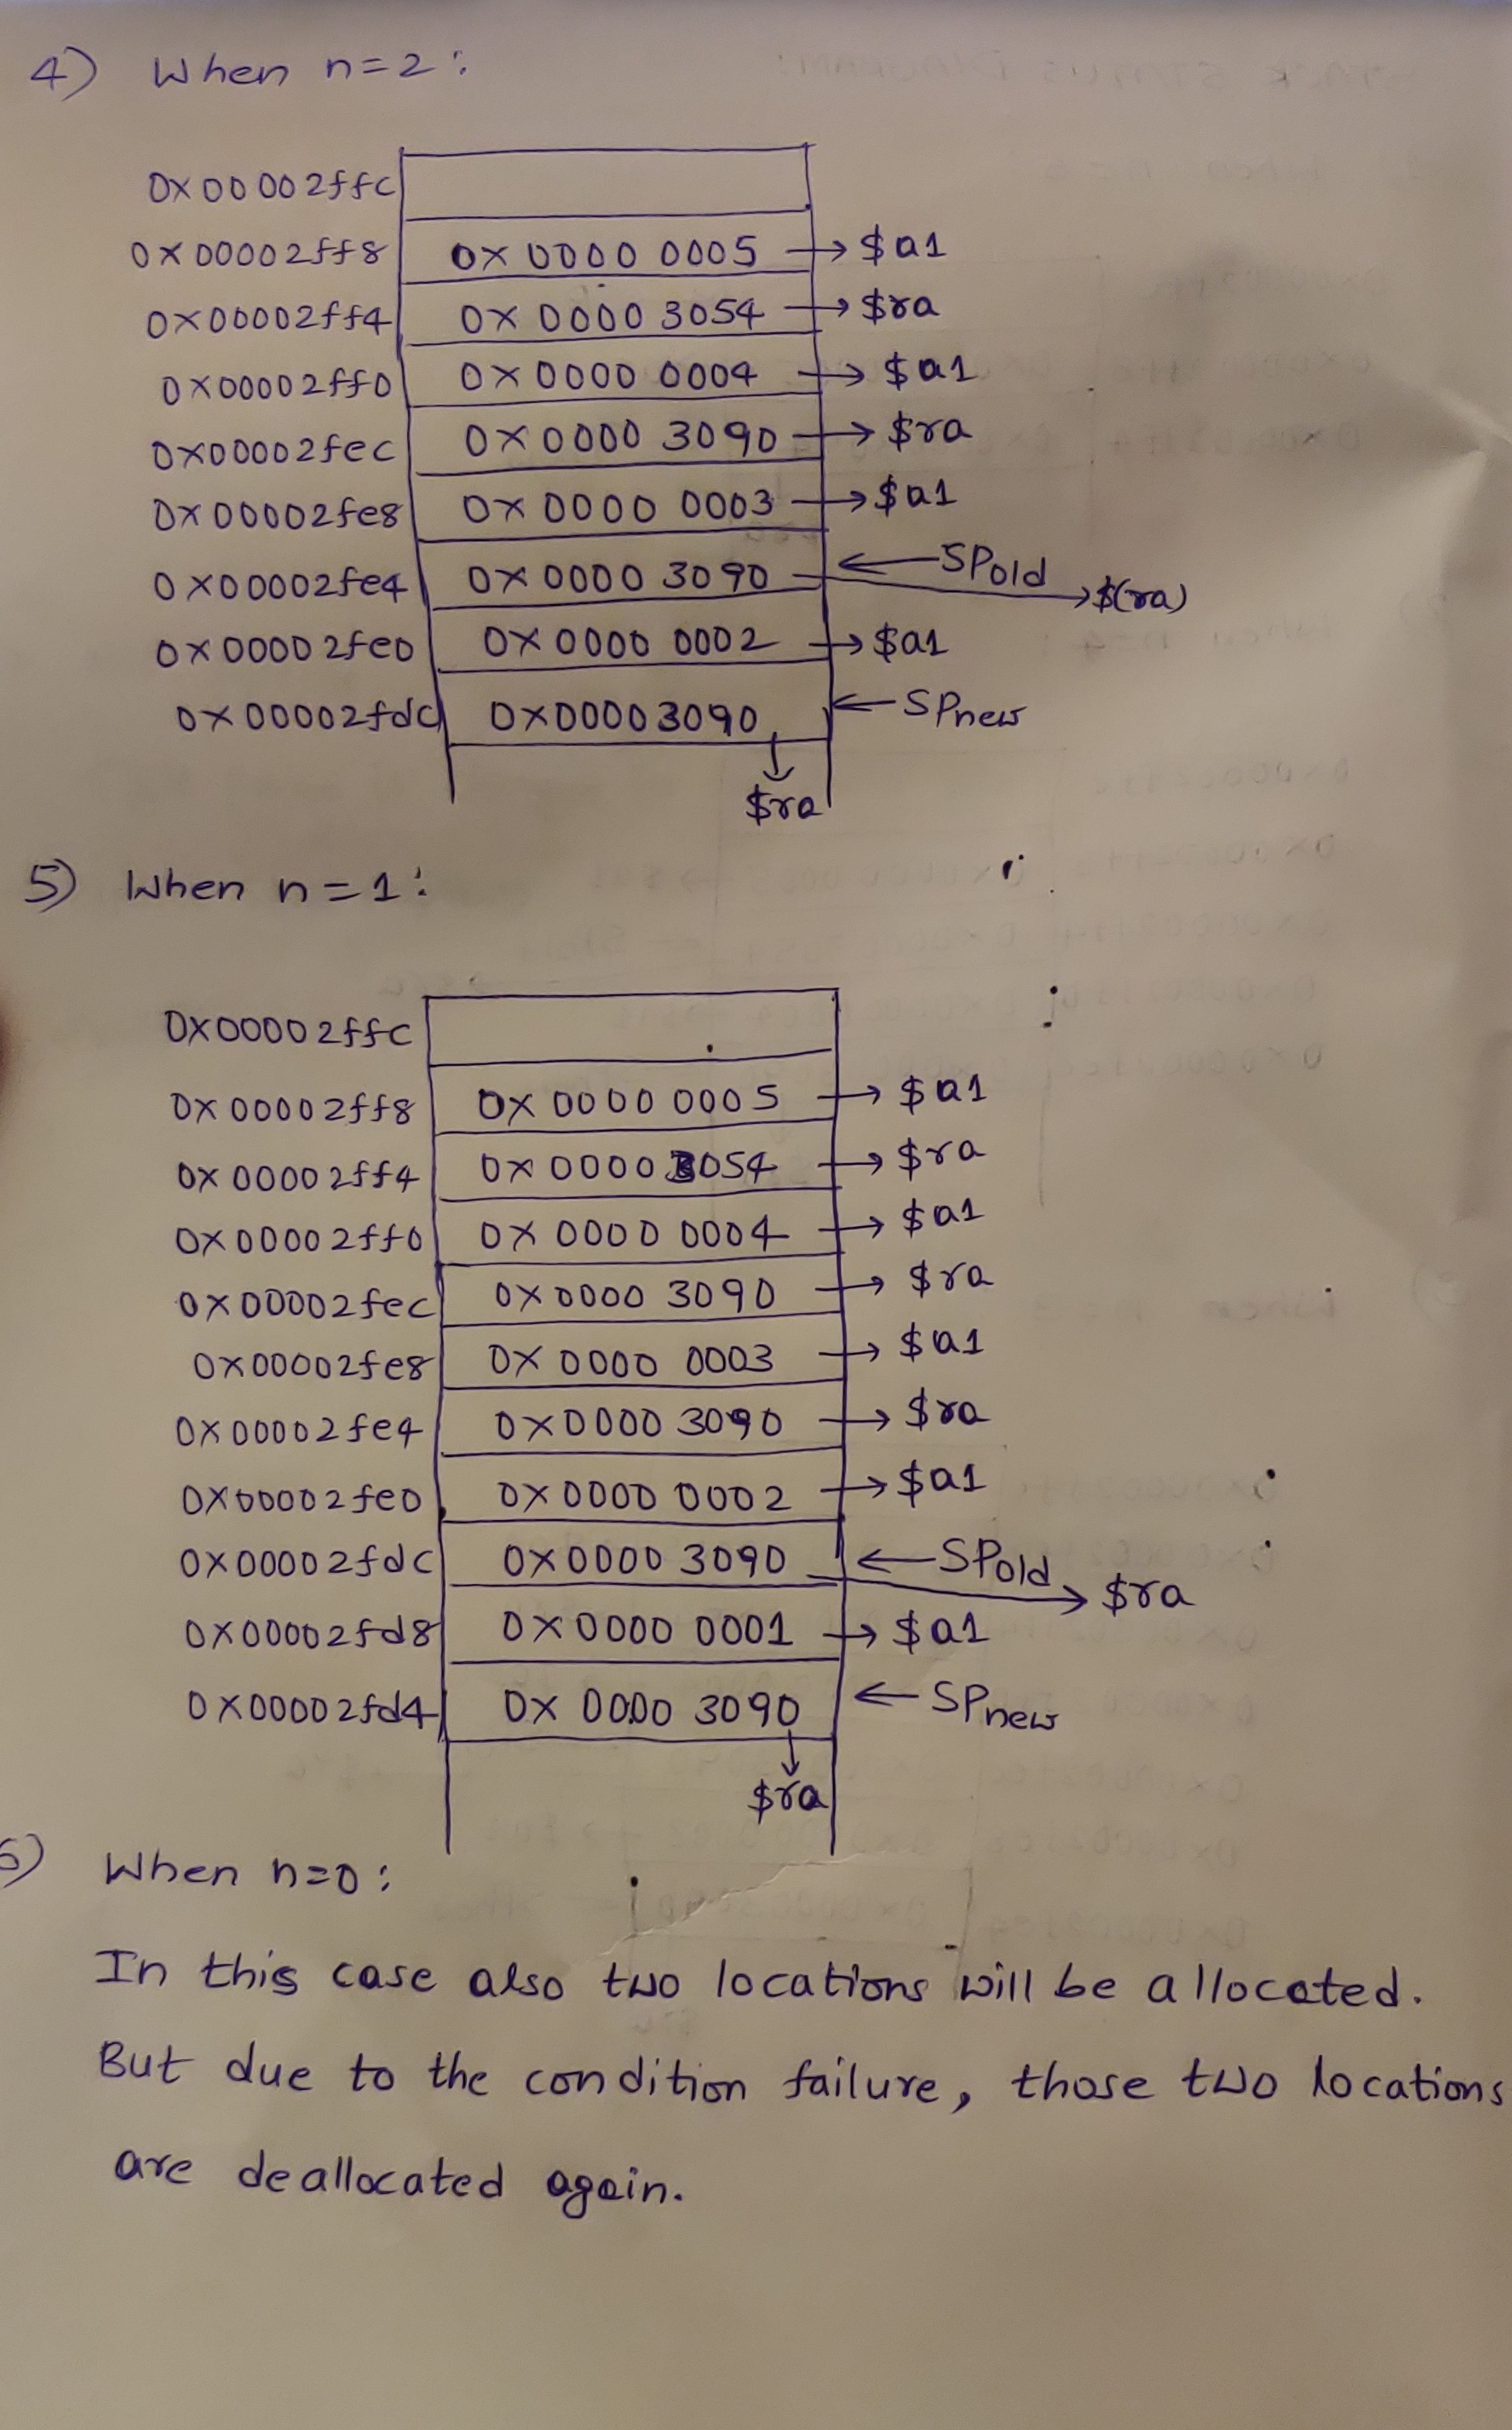 4) When n=2:
0x00002ffc
0x00002ff8 0x 0000 0005 → $a1
0x00002ff4 0x 0000 3054 → $ra
0x00002ff0 0x 0000 0004 → $a1
0x00002fec 0x 0000 3090 → $ra
0x00002fe8 0x 0000 0003 → $a1
0x00002fe4 0x 0000 3090 ← SPold → $(ra)
0x00002fe0 0x 0000 0002 → $a1
0x00002fdc 0x00003090 ← SPnew
↓
$ra
5) When n=1:
0x00002ffc
0x00002ff8 0x 0000 0005 → $a1
0x00002ff4 0x 0000 3054 → $ra
0x00002ff0 0x 0000 0004 → $a1
0x00002fec 0x0000 3090 → $ra
0x00002fe8 0x 0000 0003 → $a1
0x00002fe4 0x0000 3090 → $ra
0x00002fe0 0x0000 0002 → $a1
0x00002fdc 0x0000 3090 ← SPold → $ra
0x00002fd8 0x0000 0001 → $a1
0x00002fd4 0x 0000 3090 ← SPnew
↓
$ra
6) When n=0:
In this case also two locations will be allocated.
But due to the condition failure, those two locations
are deallocated again.